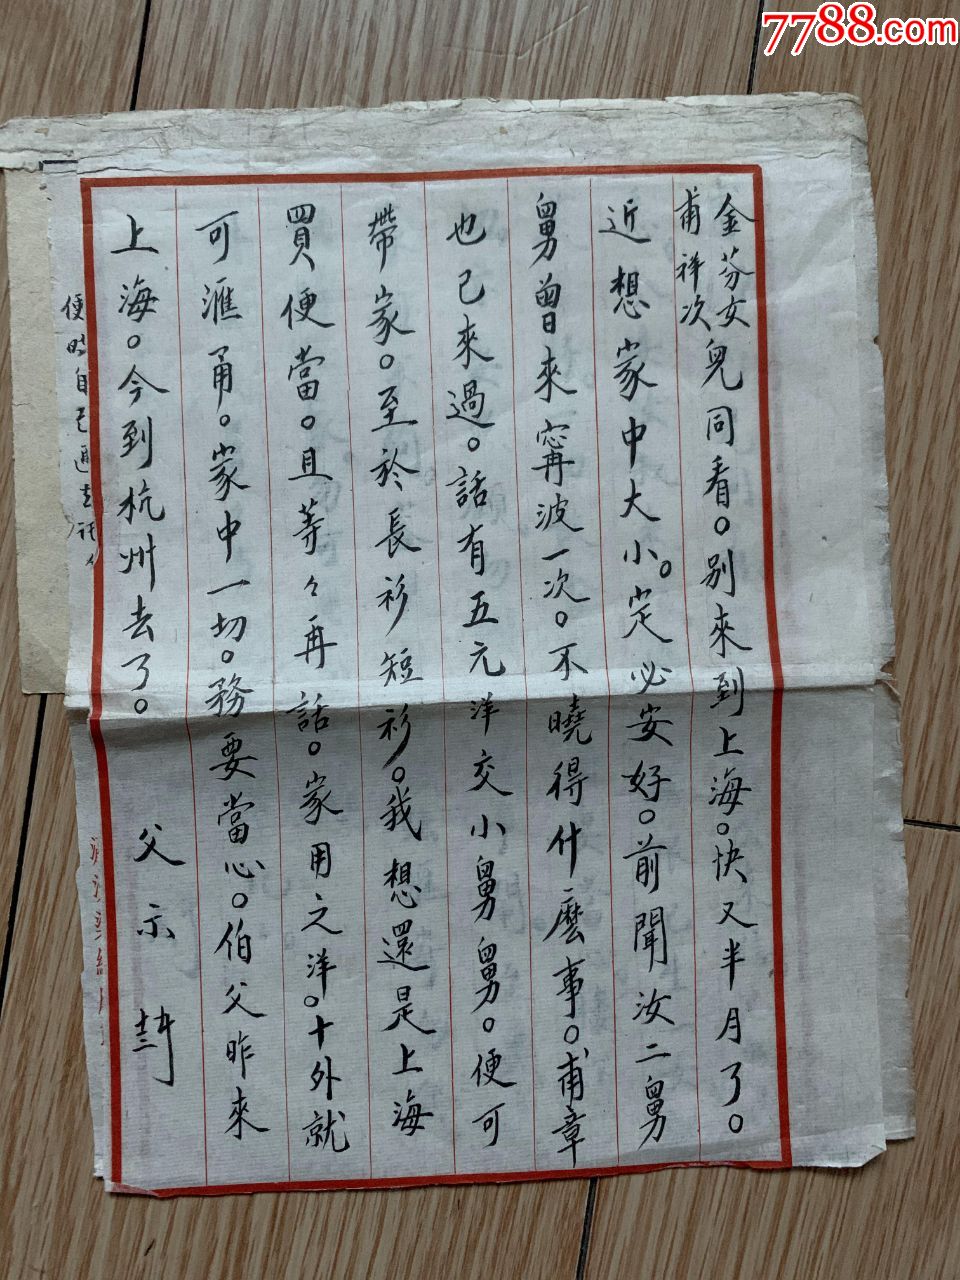 7788.com
金芬女
甫祥次兒同看。别來到上海。快又半月了。
近想家中大小。定必安好。前聞汝二舅
舅曾來甯波一次。不曉得什麽事。甫章
也已來過。話有五元洋交小舅舅。便可
帶家。至於長衫短衫。我想還是上海
買便當。且等々再話。家用之洋。十外就
可滙甬。家中一切。務要當心。伯父昨來
上海。今到杭州去了。 父示
便時自己